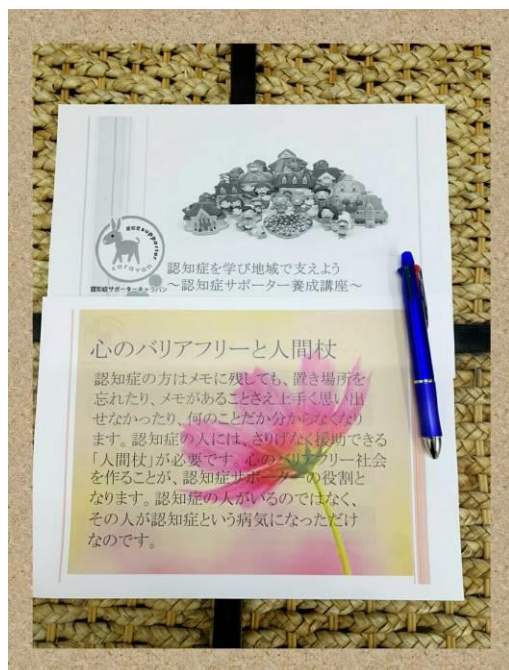 認知症supporter
caravan
認知症サポーターキャラバン
認知症を学び地域で支えよう
～認知症サポーター養成講座～
心のバリアフリーと人間杖
認知症の方はメモに残しても、置き場所を
忘れたり、メモがあることさえ上手く思い出
せなかったり、何のことだか分からなくなり
ます。認知症の人には、さりげなく援助できる
「人間杖」が必要です。心のバリアフリー社会
を作ることが、認知症サポーターの役割と
なります。認知症の人がいるのではなく、
その人が認知症という病気になっただけ
なのです。